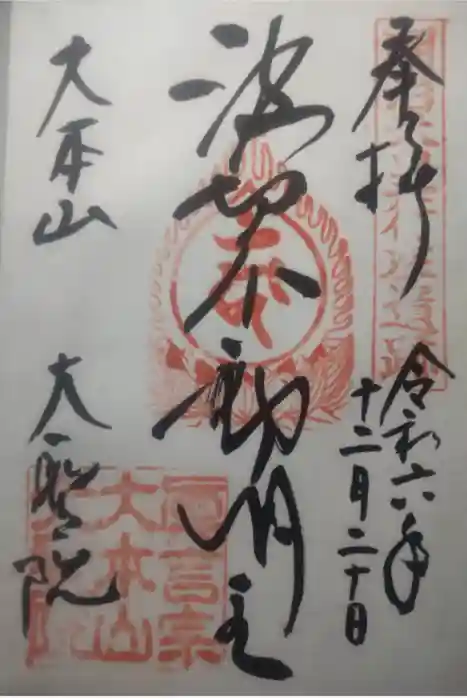 奉拝
令和六年
十二月二十日
波切不動明王
大本山
大聖院
真言宗
大本山
大聖院